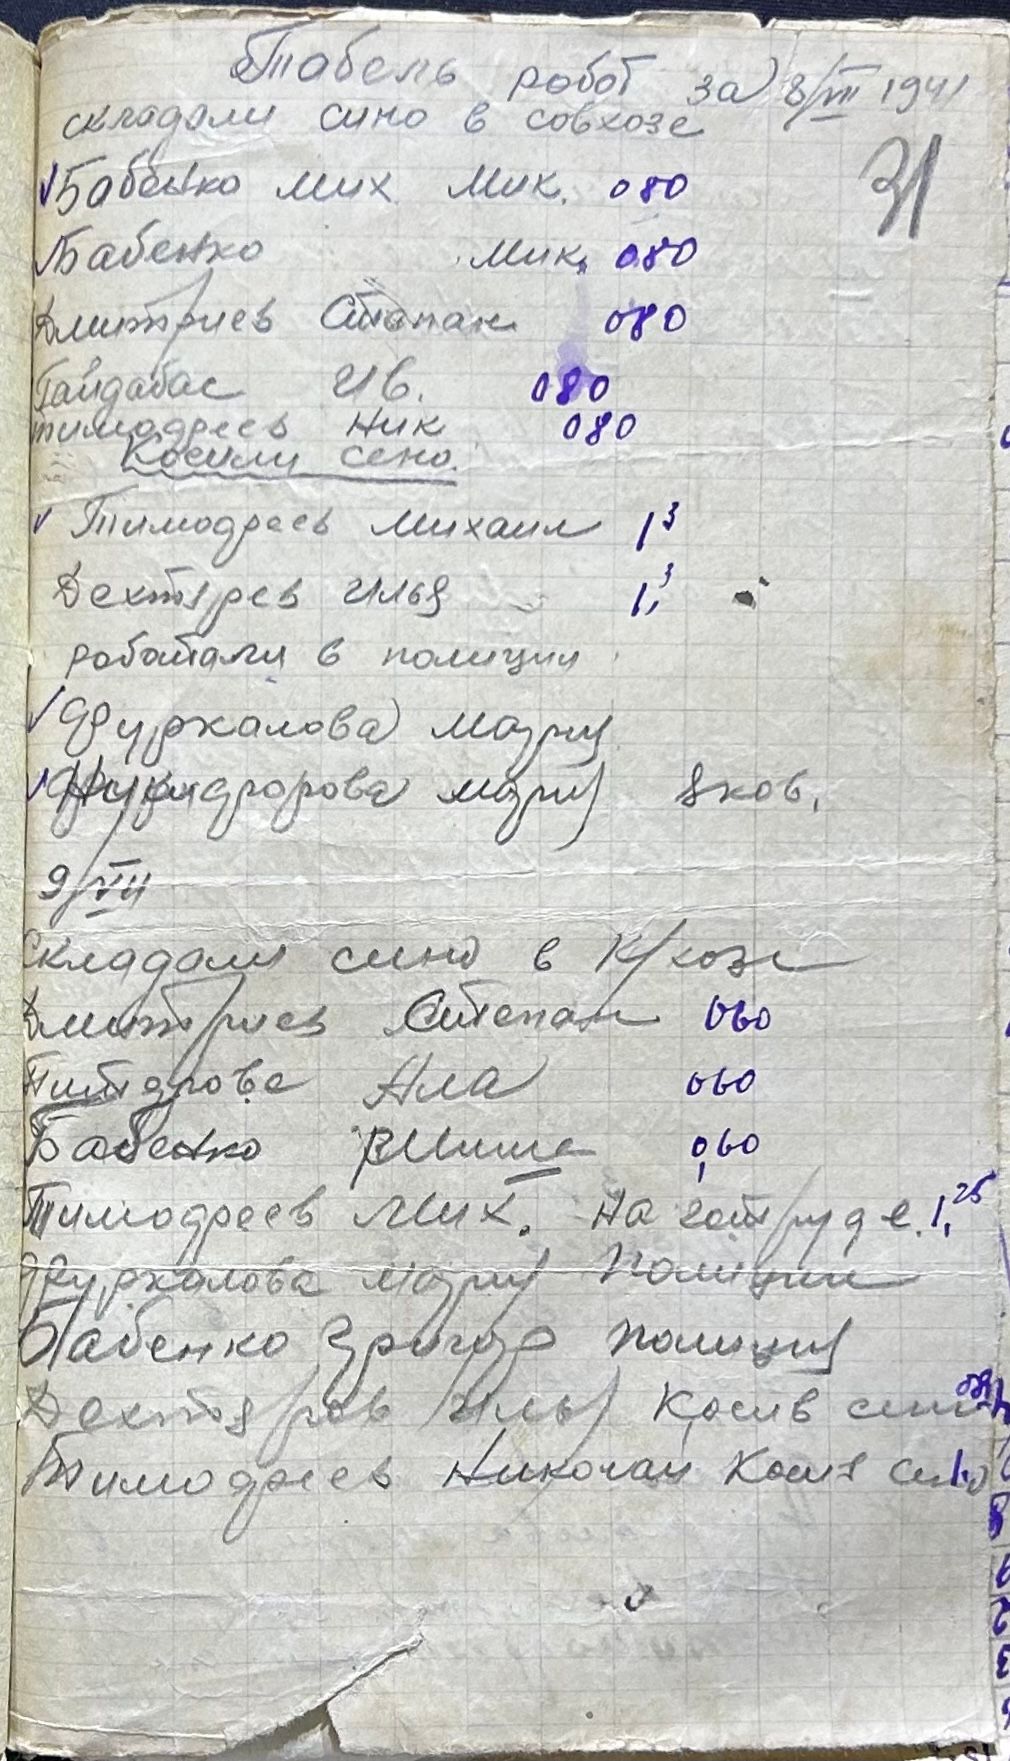 Табель робот за 8/VII 1941
складали сино в совхозе
31
Бабенко Мих Мик. 080
Бабенко Мик. 080
Дмитриев Степан 080
Гайдабас Ив. 080
Тимодреев Ник 080
Косили сено.
Тимодреев Михаил 1³
Дехтярев Илья 1,³
роботали в полиции
Фуркалова Мария
Никифорова Мария Яков.
9/VII
Складали сино в К/хозе
Дмитриев Степан 060
Ала 060
Бабенко Миша 0,60
Тимодреев Мих. На 1,25
Фуркалова Мария Полиции
Бабенко Григор полиция
Дехтяров Илья Косив сино
Тимодреев Николай Косив сино